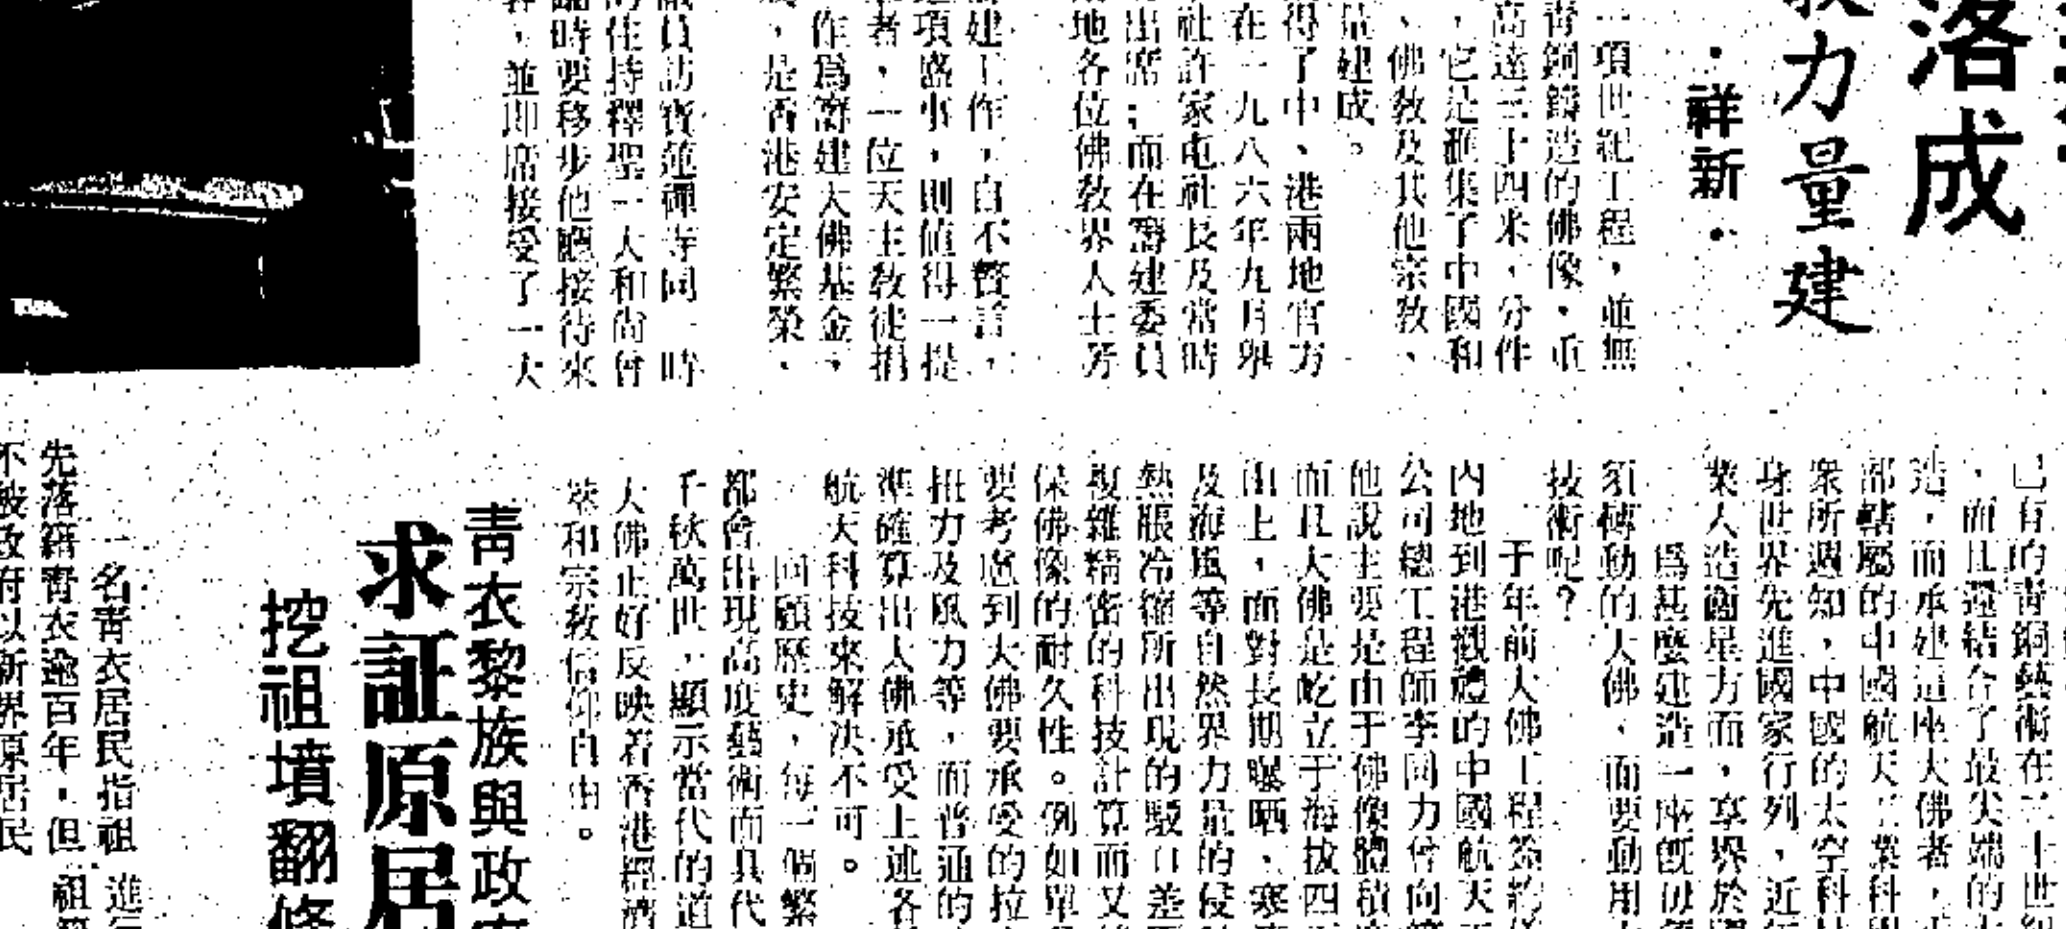 落成
教力量建
·祥新·
一項世紀工程，並無
青銅鑄造的佛像，重
高達三十四米，分件
，它是滙集了中國和
、佛教及其他宗教、
量建成。
得了中、港兩地官方
在一九八六年九月舉
社許家屯社長及當時
出席；而在籌建委員
地各位佛教界人士芳
建工作，自不贅言，
項盛事，則值得一提
者，一位天主教徒捐
作爲籌建大佛基金，
，是香港安定繁榮，
職員訪寶蓮禪寺同時
的住持釋聖一大和尚曾
臨時要移步他廳接待來
，並即席接受了一大
已有的青銅藝術在二十世紀
，而且還結合了最尖端的
造，而承建這座大佛者，
部轄屬的中國航天工業科
衆所週知，中國的太空科
身世界先進國家行列，近
業人造衞星方面，享譽於
爲甚麼建造一座旣毋
須轉動的大佛，而要動用
技術呢？
于年前大佛工程簽約
內地到港觀禮的中國航天
公司總工程師李同力曾向
他說主要是由于佛像體積
而且大佛是屹立于海拔四
山上，面對長期曝晒、寒
及海風等自然界力量的侵
熱脹冷縮所出現的駁口差
複雜精密的科技計算而又
保佛像的耐久性。例如單
要考慮到大佛要承受的拉
扭力及風力等，而普通的
準確算出大佛承受上述各
航天科技來解決不可。
回顧歷史，每一個繁
都會出現高度藝術而具代
千秋萬世，顯示當代的道
大佛正好反映着香港經濟
榮和宗教信仰自由。
青衣黎族與政
求証原居
挖祖墳翻修
一名青衣居民指祖
先落籍青衣逾百年，但
不被政府以新界原居民
進行
祖